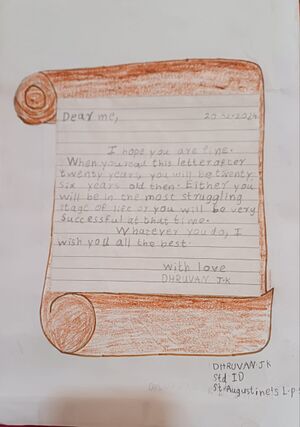 Dear me,
I hope you are fine.
When you read this letter after
twenty years, you will be twenty
six years old then. Either you
will be in the most struggling
stage of life or you will be very
successful at that time.
Whatever you do, I
wish you all the best.
With love
DHRUVAN J.K
DHRUVAN.J.K
Std ID
St. Augustine's L.p